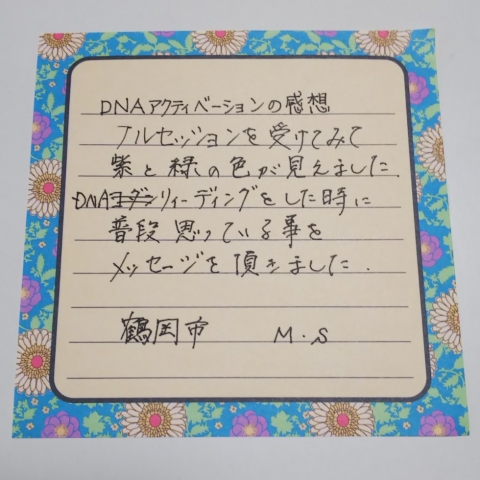 DNAアクティベーションの感想
ノルセッションを受けてみて
紫と緑の色が見えました.
DNAリィーディングをした時に
普段思っている事を
メッセージを頂きました.
鶴岡市 M.S